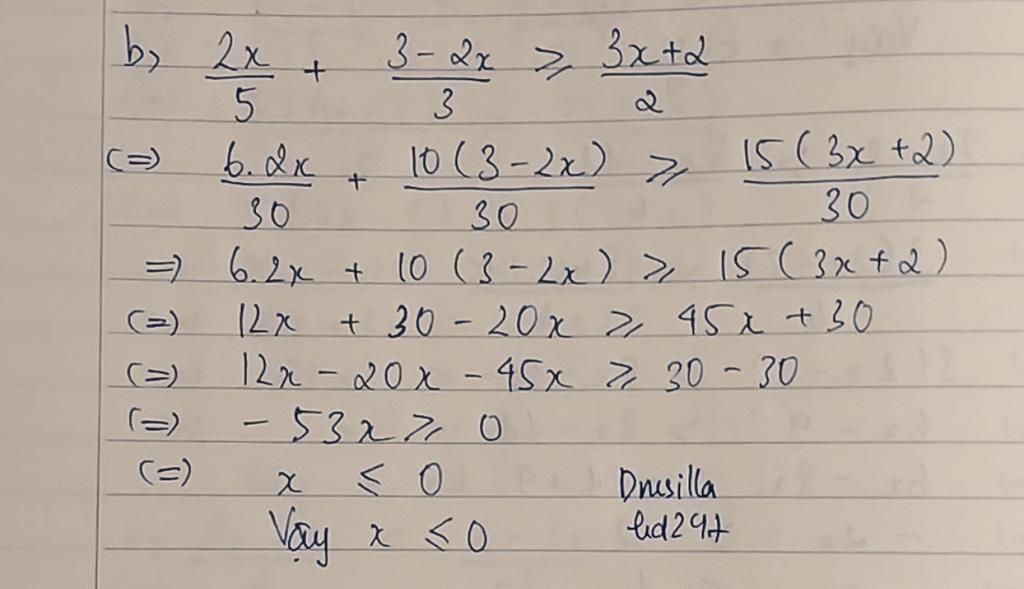 b, 2x/5 + 3-2x/3 ≥ 3x+2/2
(=) 6.2x/30 + 10(3-2x)/30 ≥ 15(3x+2)/30
=) 6.2x + 10(3-2x) ≥ 15(3x+2)
(=) 12x + 30 - 20x ≥ 45x + 30
(=) 12x - 20x - 45x ≥ 30 - 30
(=) - 53x ≥ 0
(=) x ≤ 0
Drusilla
Vậy x ≤ 0